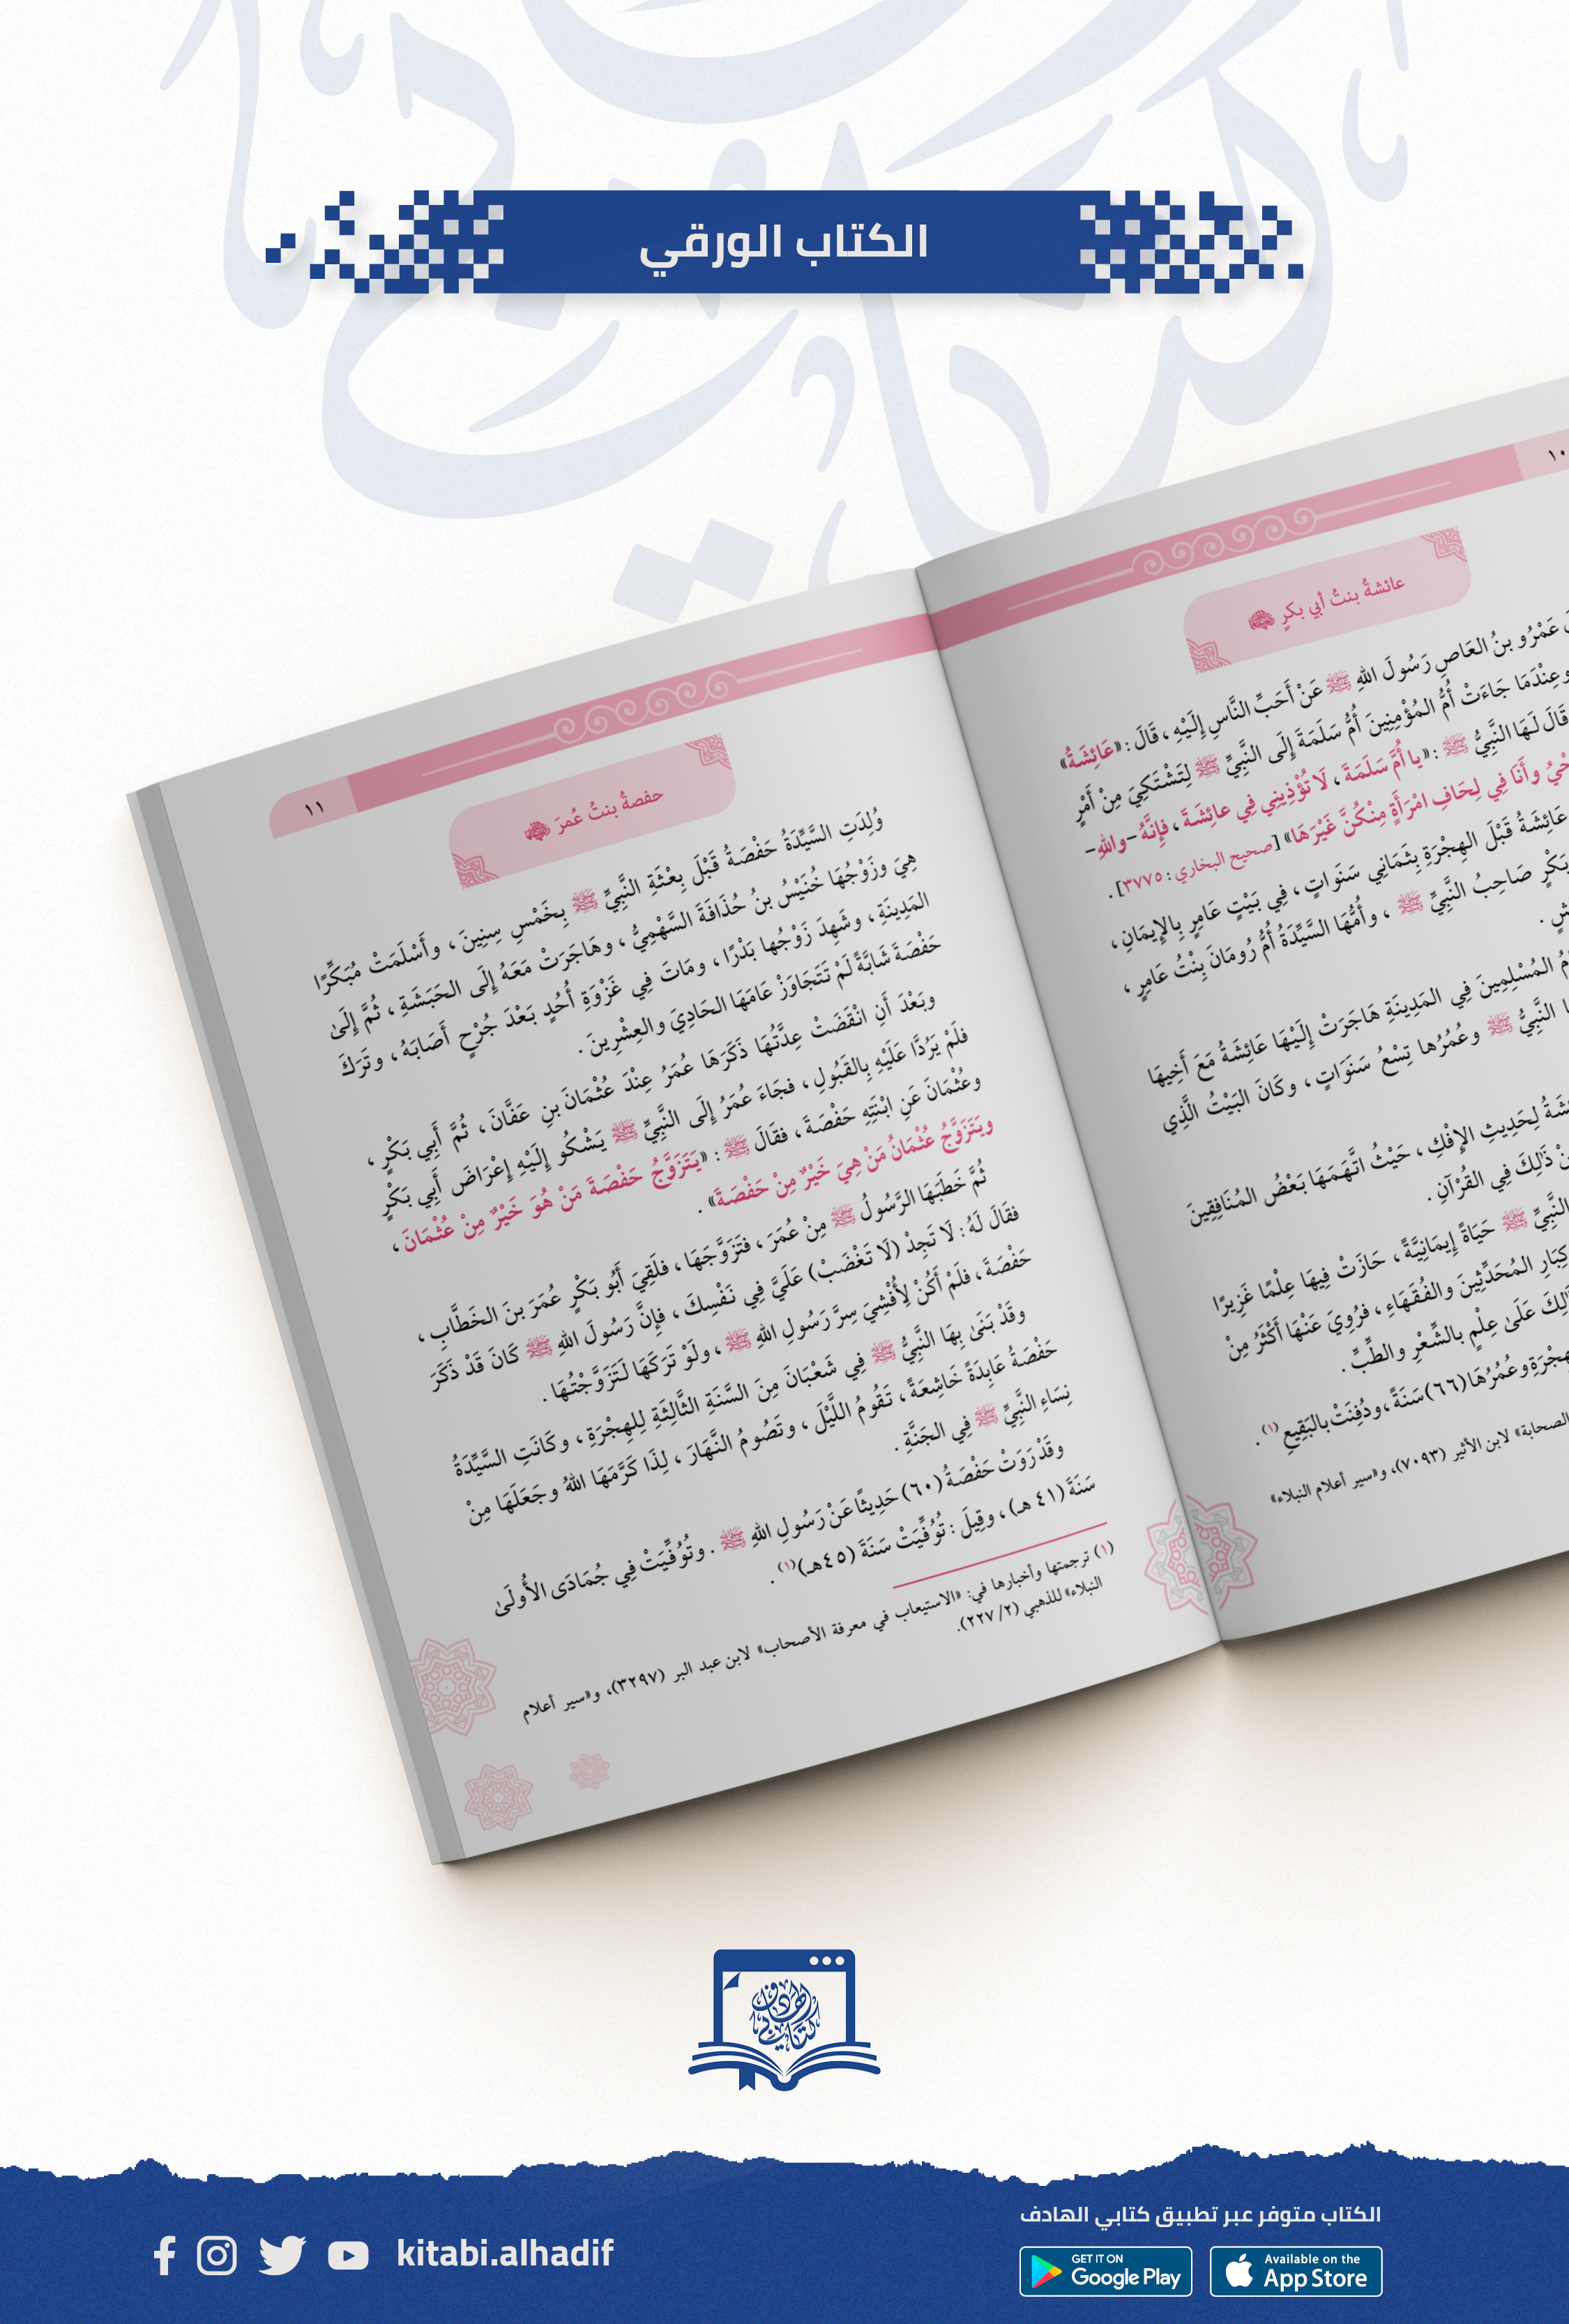 الكتاب الورقي
١٠
عائشةُ بنتُ أبي بكرٍ
عَمْرُو بنُ العَاصِ رَسُولَ اللهِ ﷺ عَنْ أَحَبِّ النَّاسِ إِلَيْهِ ، قَالَ : «عَائِشَةُ»
وعِنْدَمَا جَاءَتْ أُمُّ المُؤْمِنِينَ أُمُّ سَلَمَةَ إِلَى النَّبِيِّ ﷺ لِتَشْتَكِيَ مِنْ أَمْرٍ
قَالَ لَهَا النَّبِيُّ ﷺ : «يا أُمَّ سَلَمَةَ ، لَا تُؤْذِينِي فِي عائِشَةَ ، فإِنَّهُ -واللهِ-
وأَنَا فِي لِحَافِ امْرَأَةٍ مِنْكُنَّ غَيْرَهَا» [صحيح البخاري : ٣٧٧٥] .
عَائِشَةُ قَبْلَ الهِجْرَةِ بِثَمَانِي سَنَوَاتٍ ، فِي بَيْتٍ عَامِرٍ بِالإِيمَانِ ،
بَكْرٍ صَاحِبُ النَّبِيِّ ﷺ ، وأُمُّهَا السَّيِّدَةُ أُمُّ رُومَانَ بِنْتُ عَامِرٍ ،
المُسْلِمِينَ فِي المَدِينَةِ هَاجَرَتْ إِلَيْهَا عَائِشَةُ مَعَ أَخِيهَا
النَّبِيُّ ﷺ وعُمُرُها تِسْعُ سَنَوَاتٍ ، وكَانَ البَيْتُ الَّذِي
لِحَدِيثِ الإِفْكِ ، حَيْثُ اتَّهَمَهَا بَعْضُ المُنَافِقِينَ
ذَلِكَ فِي القُرْآنِ .
النَّبِيِّ ﷺ حَيَاةً إِيمَانِيَّةً ، حَازَتْ فِيهَا عِلْمًا غَزِيرًا
كِبَارِ المُحَدِّثِينَ والفُقَهَاءِ ، فرُوِيَ عَنْهَا أَكْثَرُ مِنْ
عَلَى عِلْمٍ بالشِّعْرِ والطِّبِّ .
وعُمُرُهَا (٦٦) سَنَةً ، ودُفِنَتْ بالبَقِيعِ (١) .
الصحابة» لابن الأثير (٧٠٩٣)، و«سير أعلام النبلاء»
١١
حفصةُ بنتُ عُمرَ
وُلِدَتِ السَّيِّدَةُ حَفْصَةُ قَبْلَ بِعْثَةِ النَّبِيِّ ﷺ بِخَمْسِ سِنِينَ ، وأَسْلَمَتْ مُبَكِّرًا
هِيَ وزَوْجُهَا خُنَيْسُ بنُ حُذَافَةَ السَّهْمِيُّ ، وهَاجَرَتْ مَعَهُ إِلَى الحَبَشَةِ ، ثُمَّ إِلَى
المَدِينَةِ ، وشَهِدَ زَوْجُها بَدْرًا ، ومَاتَ فِي غَزْوَةِ أُحُدٍ بَعْدَ جُرْحٍ أَصَابَهُ ، وتَرَكَ
حَفْصَةَ شَابَّةً لَمْ تَتَجَاوَزْ عَامَهَا الحَادِيَ والعِشْرِينَ .
وبَعْدَ أَنِ انْقَضَتْ عِدَّتُهَا ذَكَرَهَا عُمَرُ عِنْدَ عُثْمَانَ بنِ عَفَّانَ ، ثُمَّ أَبِي بَكْرٍ ،
فلَمْ يَرُدَّا عَلَيْهِ بِالقَبُولِ ، فجَاءَ عُمَرُ إِلَى النَّبِيِّ ﷺ يَشْكُو إِلَيْهِ إِعْرَاضَ أَبِي بَكْرٍ
وعُثْمَانَ عَنِ ابْنَتِهِ حَفْصَةَ ، فقَالَ ﷺ : «يَتَزَوَّجُ حَفْصَةَ مَنْ هُوَ خَيْرٌ مِنْ عُثْمَانَ ،
ويَتَزَوَّجُ عُثْمَانُ مَنْ هِيَ خَيْرٌ مِنْ حَفْصَةَ» .
ثُمَّ خَطَبَهَا الرَّسُولُ ﷺ مِنْ عُمَرَ ، فتَزَوَّجَهَا ، فلَقِيَ أَبُو بَكْرٍ عُمَرَ بنَ الخَطَّابِ ،
فقَالَ لَهُ : لَا تَجِدْ (لَا تَغْضَبْ) عَلَيَّ فِي نَفْسِكَ ، فإِنَّ رَسُولَ اللهِ ﷺ كَانَ قَدْ ذَكَرَ
حَفْصَةَ ، فلَمْ أَكُنْ لِأُفْشِيَ سِرَّ رَسُولِ اللهِ ﷺ ، ولَوْ تَرَكَهَا لَتَزَوَّجْتُهَا .
وقَدْ بَنَى بِهَا النَّبِيُّ ﷺ فِي شَعْبَانَ مِنَ السَّنَةِ الثَّالِثَةِ لِلهِجْرَةِ ، وكَانَتِ السَّيِّدَةُ
حَفْصَةُ عَابِدَةً خَاشِعَةً ، تَقُومُ اللَّيْلَ ، وتَصُومُ النَّهَارَ ، لِذَا كَرَّمَهَا اللهُ وجَعَلَهَا مِنْ
نِسَاءِ النَّبِيِّ ﷺ فِي الجَنَّةِ .
وقَدْ رَوَتْ حَفْصَةُ (٦٠) حَدِيثًا عَنْ رَسُولِ اللهِ ﷺ . وتُوُفِّيَتْ فِي جُمَادَى الأُولَى
سَنَةَ (٤١ هـ) ، وقِيلَ : تُوُفِّيَتْ سَنَةَ (٤٥هـ) (١) .
(١) ترجمتها وأخبارها في: «الاستيعاب في معرفة الأصحاب» لابن عبد البر (٣٢٩٧)، و«سير أعلام
النبلاء» للذهبي (٢/ ٢٢٧).
الكتاب متوفر عبر تطبيق كتابي الهادف
kitabi.alhadif
GET IT ON
Google Play
Available on the
App Store